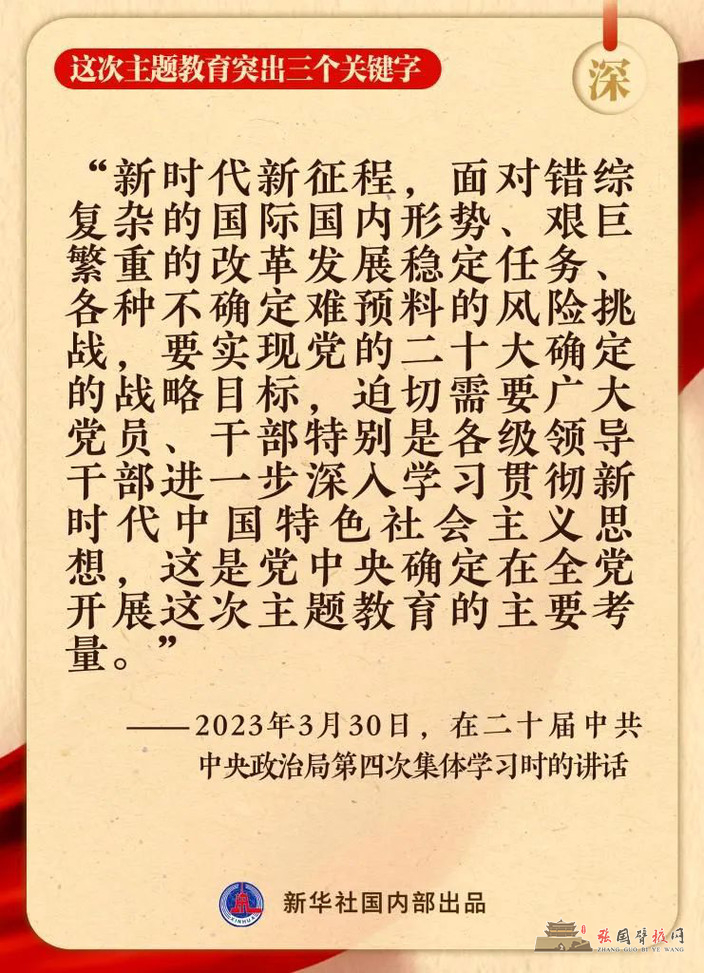 这次主题教育突出三个关键字
深
“新时代新征程，面对错综
复杂的国际国内形势、艰巨
繁重的改革发展稳定任务、
各种不确定难预料的风险挑
战，要实现党的二十大确定
的战略目标，迫切需要广大
党员、干部特别是各级领导
干部进一步深入学习贯彻新
时代中国特色社会主义思
想，这是党中央确定在全党
开展这次主题教育的主要考
量。”
——2023年3月30日，在二十届中共
中央政治局第四次集体学习时的讲话
XINHUA
新华社国内部出品
张国臂掖网
ZHANG GUO BI YE WANG